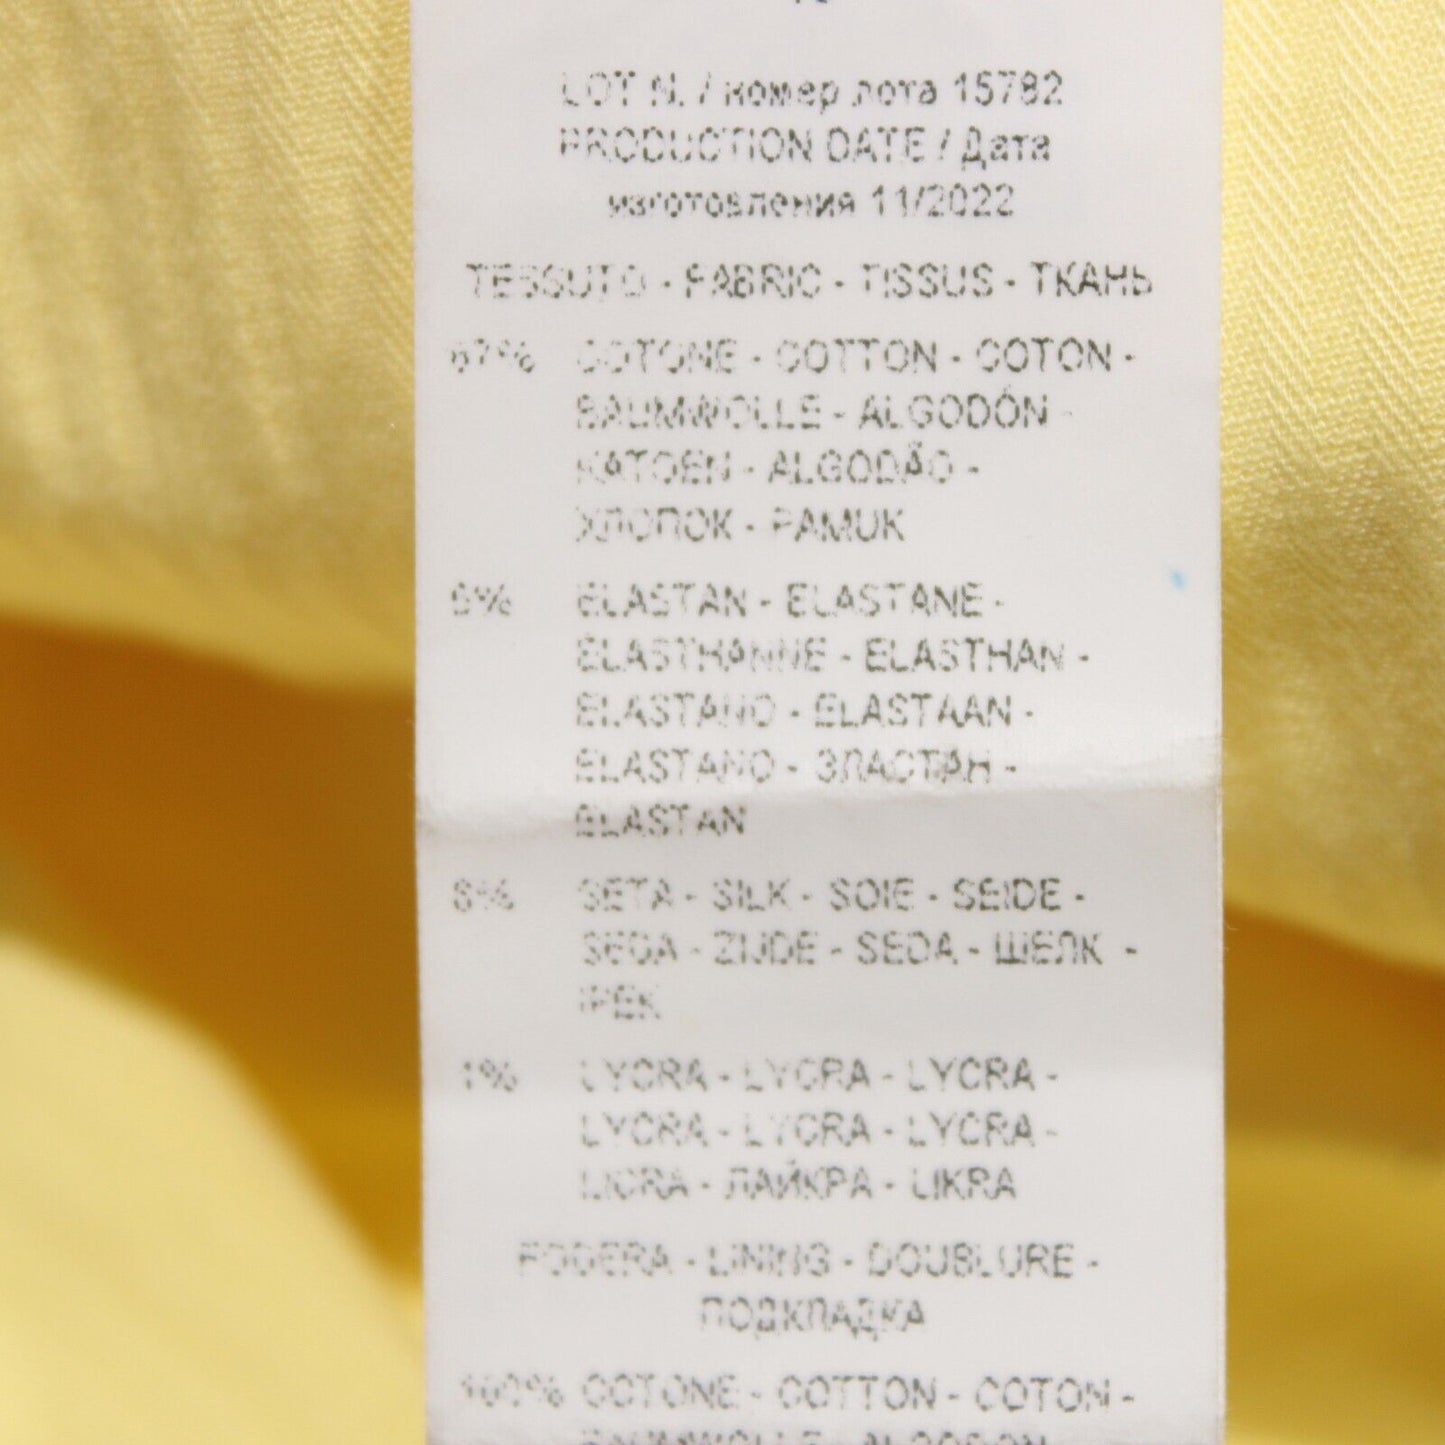 LOT N. / номер лота 15782
PRODUCTION DATE / Дата
изготовления 11/2022
TESSUTO - FABRIC - TISSUS - ТКАНЬ
COTONE - COTTON - COTON -
BAUMWOLLE - ALGODÓN -
KATOEN - ALGODÃO -
ХЛОПОК - PAMUK
ELASTAN - ELASTANE -
ELASTHANNE - ELASTHAN -
ELASTANO - ELASTAAN -
ELASTANO - ЭЛАСТАН -
ELASTAN
SETA - SILK - SOIE - SEIDE -
SEDA - ZIJDE - SEDA - ШЕЛК -
IPEK
1% LYCRA - LYCRA - LYCRA -
LYCRA - LYCRA - LYCRA -
LICRA - ЛАЙКРА - LIKRA
FODERA - LINING - DOUBLURE -
ПОДКЛАДКА
100% COTONE - COTTON - COTON -
BAUMWOLLE - ALGODÓN